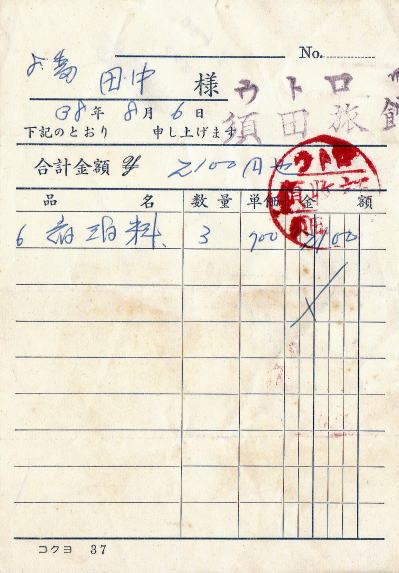 No.
田中 様
ウトロ
須田旅館
38年8月6日
下記のとおり 申し上げます
合計金額 ¥ 2100円也
ウトロ
品名 数量 単価 金額
6 宿泊料 3 700 2100
コクヨ 37